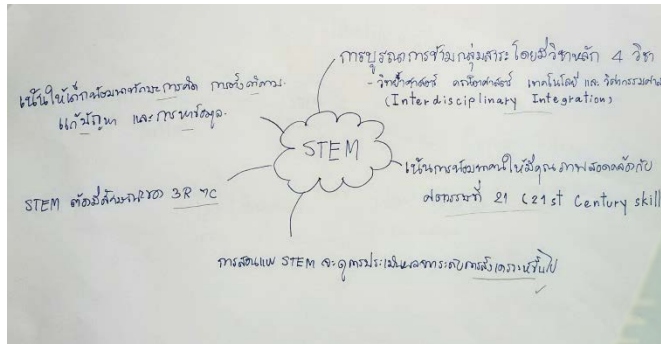 การบูรณาการข้ามกลุ่มสาระโดยมีวิชาหลัก 4 วิชา
- วิทยาศาสตร์ คณิตศาสตร์ เทคโนโลยี และ วิศวกรรมศาสตร์
(Interdisciplinary Integration)
เน้นให้เด็กพัฒนาทักษะการคิด การตั้งคำถาม
แก้ปัญหา และการหาข้อมูล
STEM
เน้นการพัฒนาคนให้มีคุณภาพสอดคล้องกับ
ศตวรรษที่ 21 (21st Century skill
STEM ต้องมีลักษณะของ 3R 7C
การสอนแบบ STEM จะดูการประเมินผลการระดับการสังเคราะห์ขึ้นไป